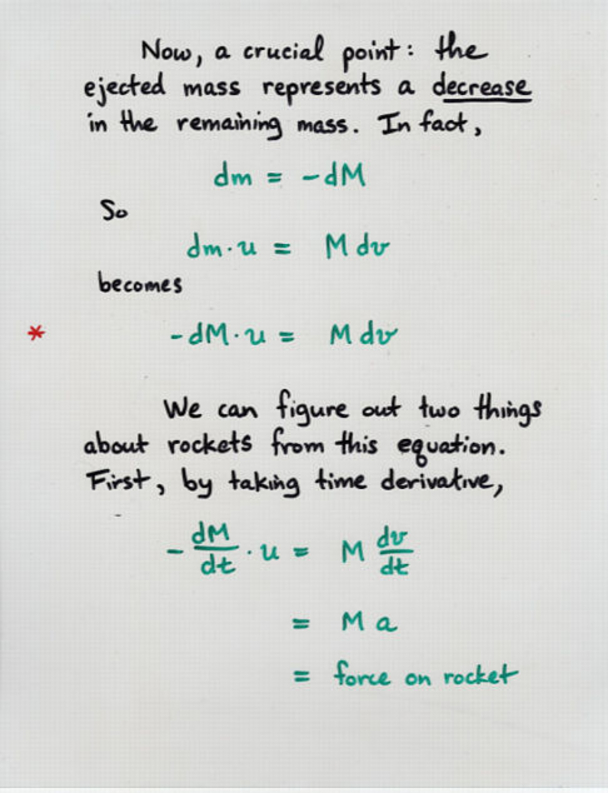 Now, a crucial point: the
ejected mass represents a decrease
in the remaining mass. In fact,
dm = -dM
So
dm·u = M dv
becomes
* -dM·u = M dv
We can figure out two things
about rockets from this equation.
First, by taking time derivative,
- dM/dt · u = M dv/dt
= M a
= force on rocket